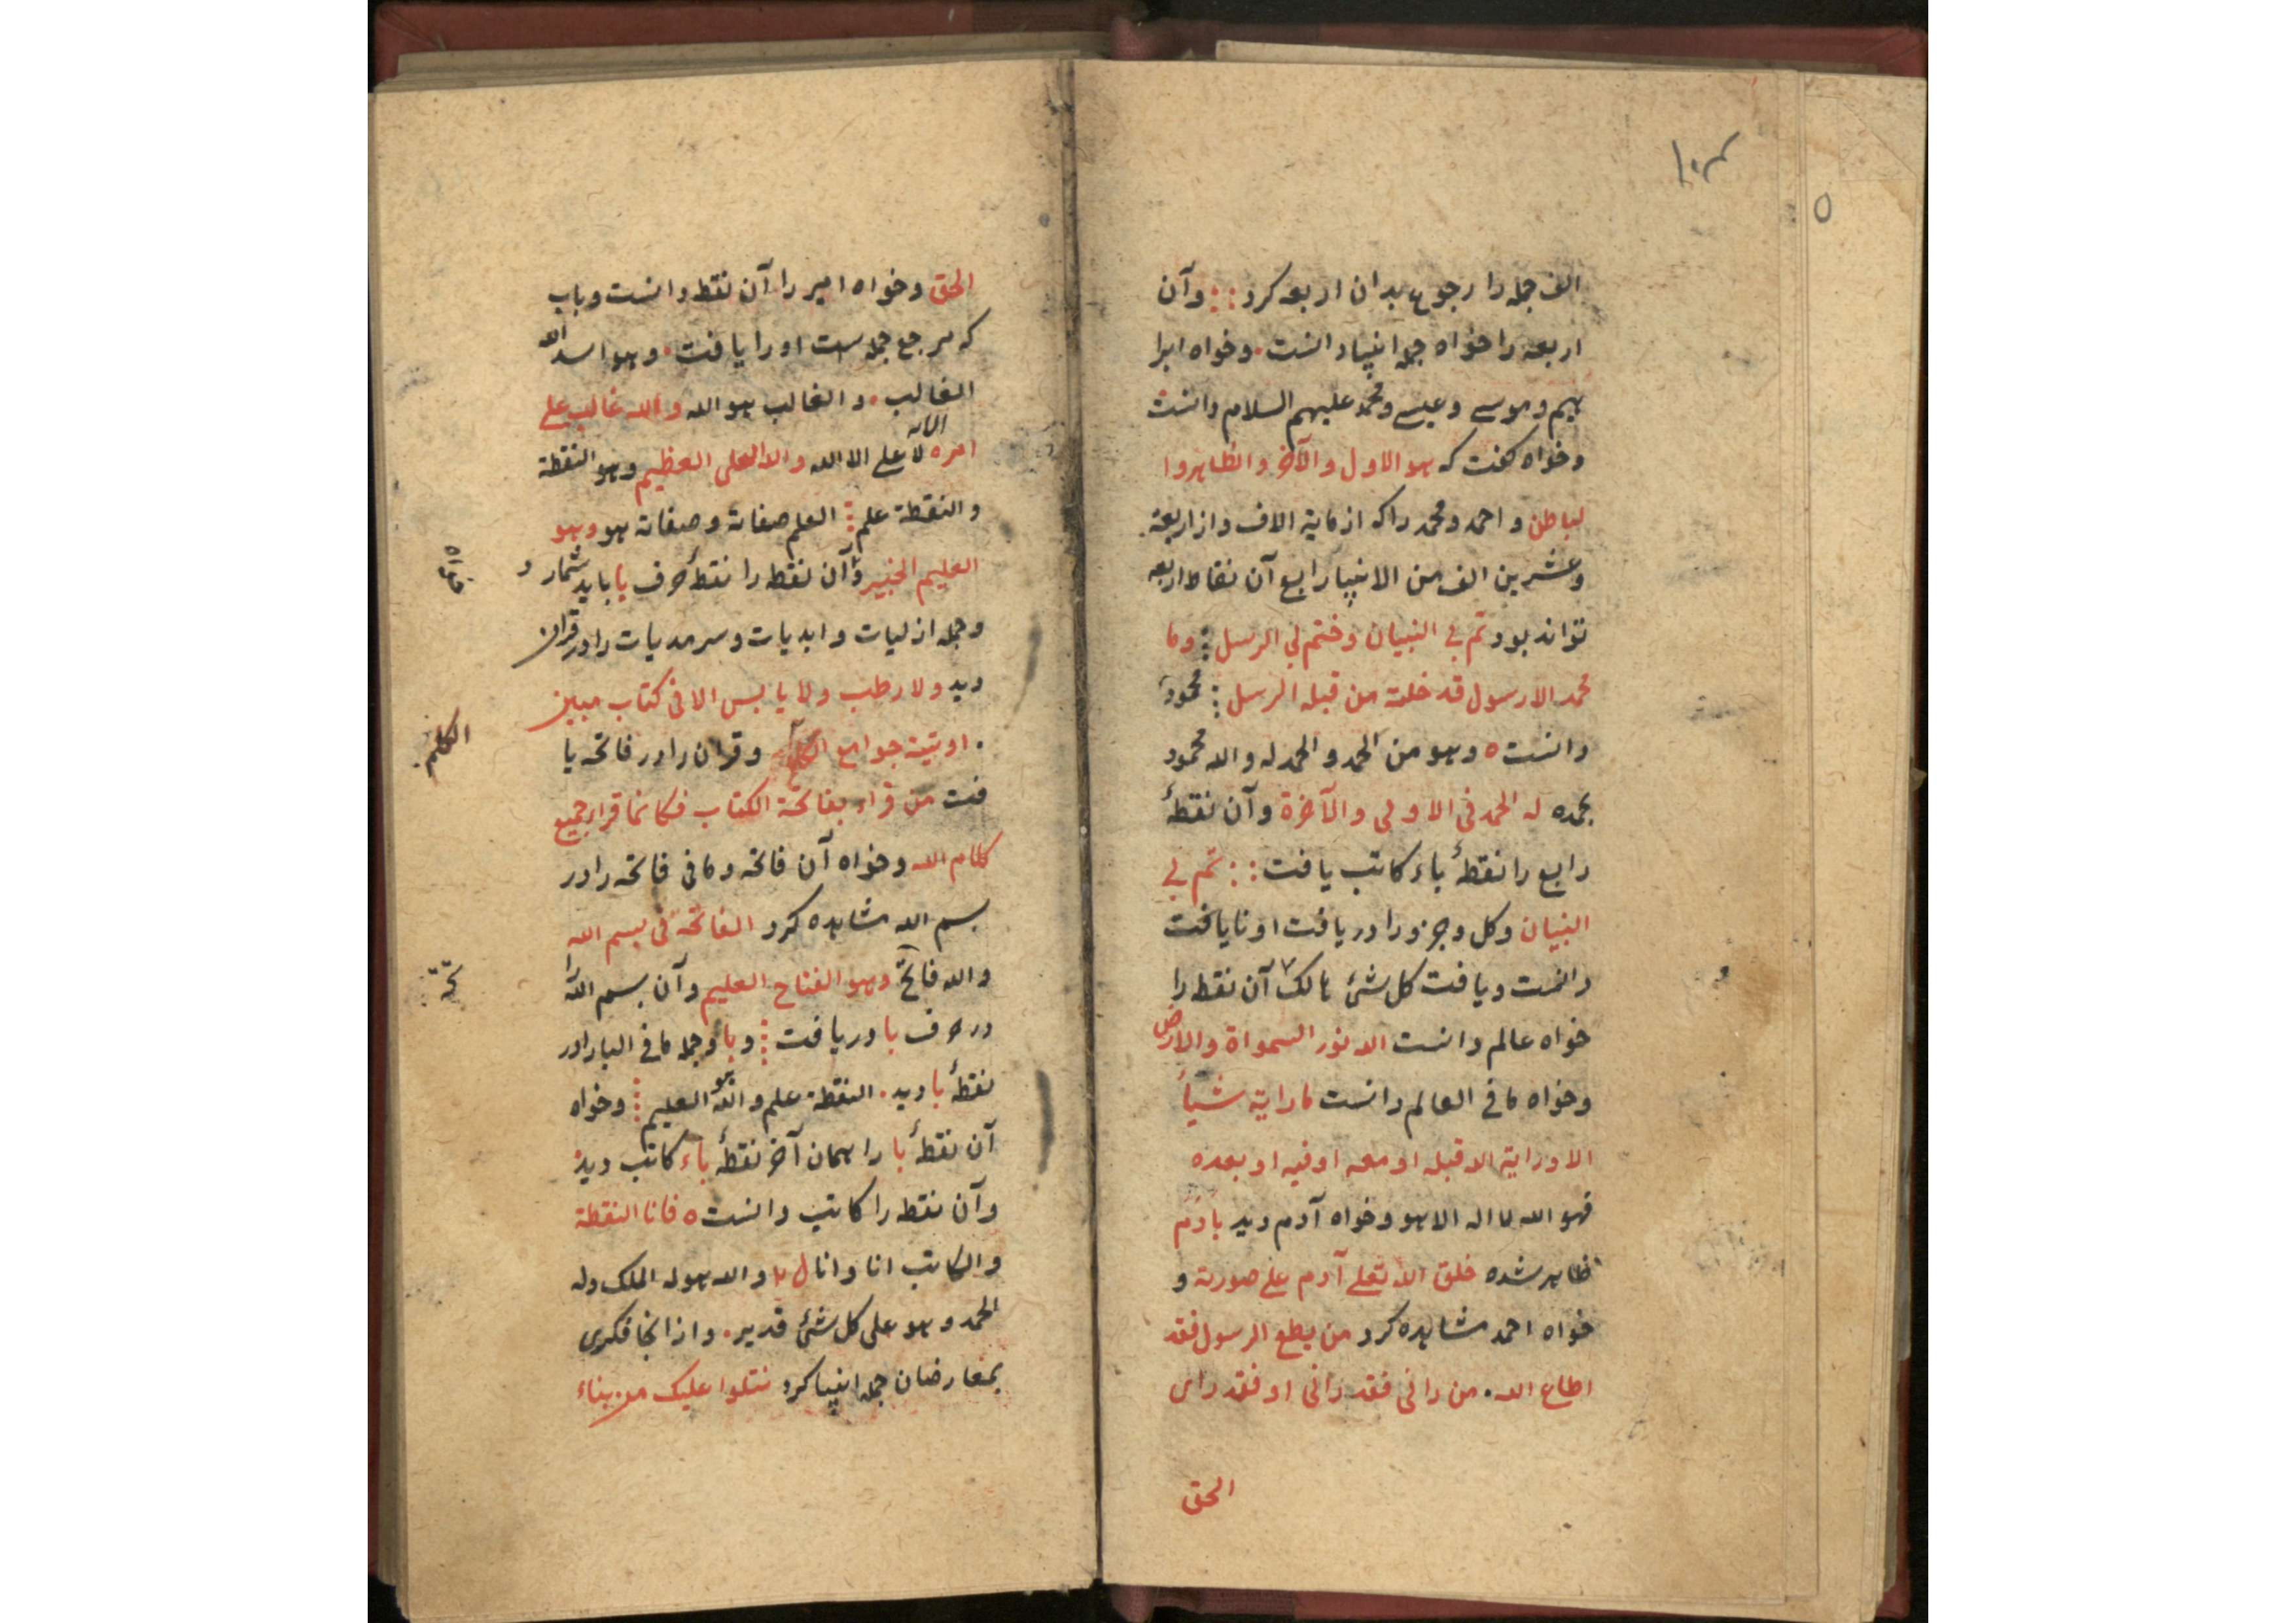 الف جمله را رجوع بدان اربعه کرد :: وآن
اربعه را خواه جمله انبیا دانست . وخواه ابرا
هیم و موسے وعیسے ومحمد علیهم السلام دانست
وخواه گفت که هو الاول والآخر والظاهر وا
لباطن و احمد ومحمد را که از مایة الاف واز اربعة
وعشرین الف من الانبیا رابع آن نقاط اربعه
تواند بود تم بی النبیان وختم لی الرسل : وما
محمد الا رسول قد خلت من قبله الرسل : محمود
دانست ٥ وهو من الحمد والحمد له والله محمود
بحمده له الحمد فی الاولی والآخرة وآن نقطهٔ
رابع را نقطهٔ باء کاتب یافت :: تم بی
النبیان وکل وجزو را دریافت او نایافت
دانست ویافت کل شئ هالک آن نقطه را
خواه عالم دانست الله نور السمواة والارض
وخواه ما فی العالم دانست ما رایة شیأ
الا ورایة الله قبله او معه او فیه او بعده
فهو الله لا اله الا هو وخواه آدم دید بادم
ظاهر شده خلق الله تعلے آدم علے صورته و
خواه احمد مشاهده کرد من یطع الرسول فقد
اطاع الله . من رانی فقد رانی او فقد رای
الحق
الحق وخواه امیر را آن نقطه دانست وباب
که مرجع جمله است او را یافت . وهو اسد الله
الغالب . والغالب هو الله والله غالب علے
امره لا علے الا الله والله العلی العظیم وهو النقطة
والنقطة علم : العلم صفاته وصفاته هو وهو
العلیم الخبیر وآن نقطه را نقطهٔ حرف با باید شمار و
وجمله ازلیات وابدیات وسرمدیات را در قران
دید ولا رطب ولا یابس الا فی کتاب مبین
. اوتیته جوامع الکلم وقران را در فاتحه یا
الکلم
فت من قراء بفاتحة الکتاب فکانما قراء جمیع
کلام الله وخواه آن فاتحه وما فی فاتحه را در
بسم الله مشاهده کرد الفاتحة فی بسم الله
والله فاتح وهو الفتاح العلیم وآن بسم الله را
در حرف با دریافت : وبا وجمله ما فی البا را در
نقطهٔ با دید . النقطة علم والله هو العلیم : وخواه
آن نقطهٔ با را همان آخر نقطهٔ باء کاتب دید
وآن نقطه را کاتب دانست ٥ فانا النقطة
والکاتب انا وانا ل والله هو له الملک وله
الحمد وهو علی کل شئ قدیر . واز انجا فکری
بمعارضان جمله انبیا کرد نتلوا علیک من نباء